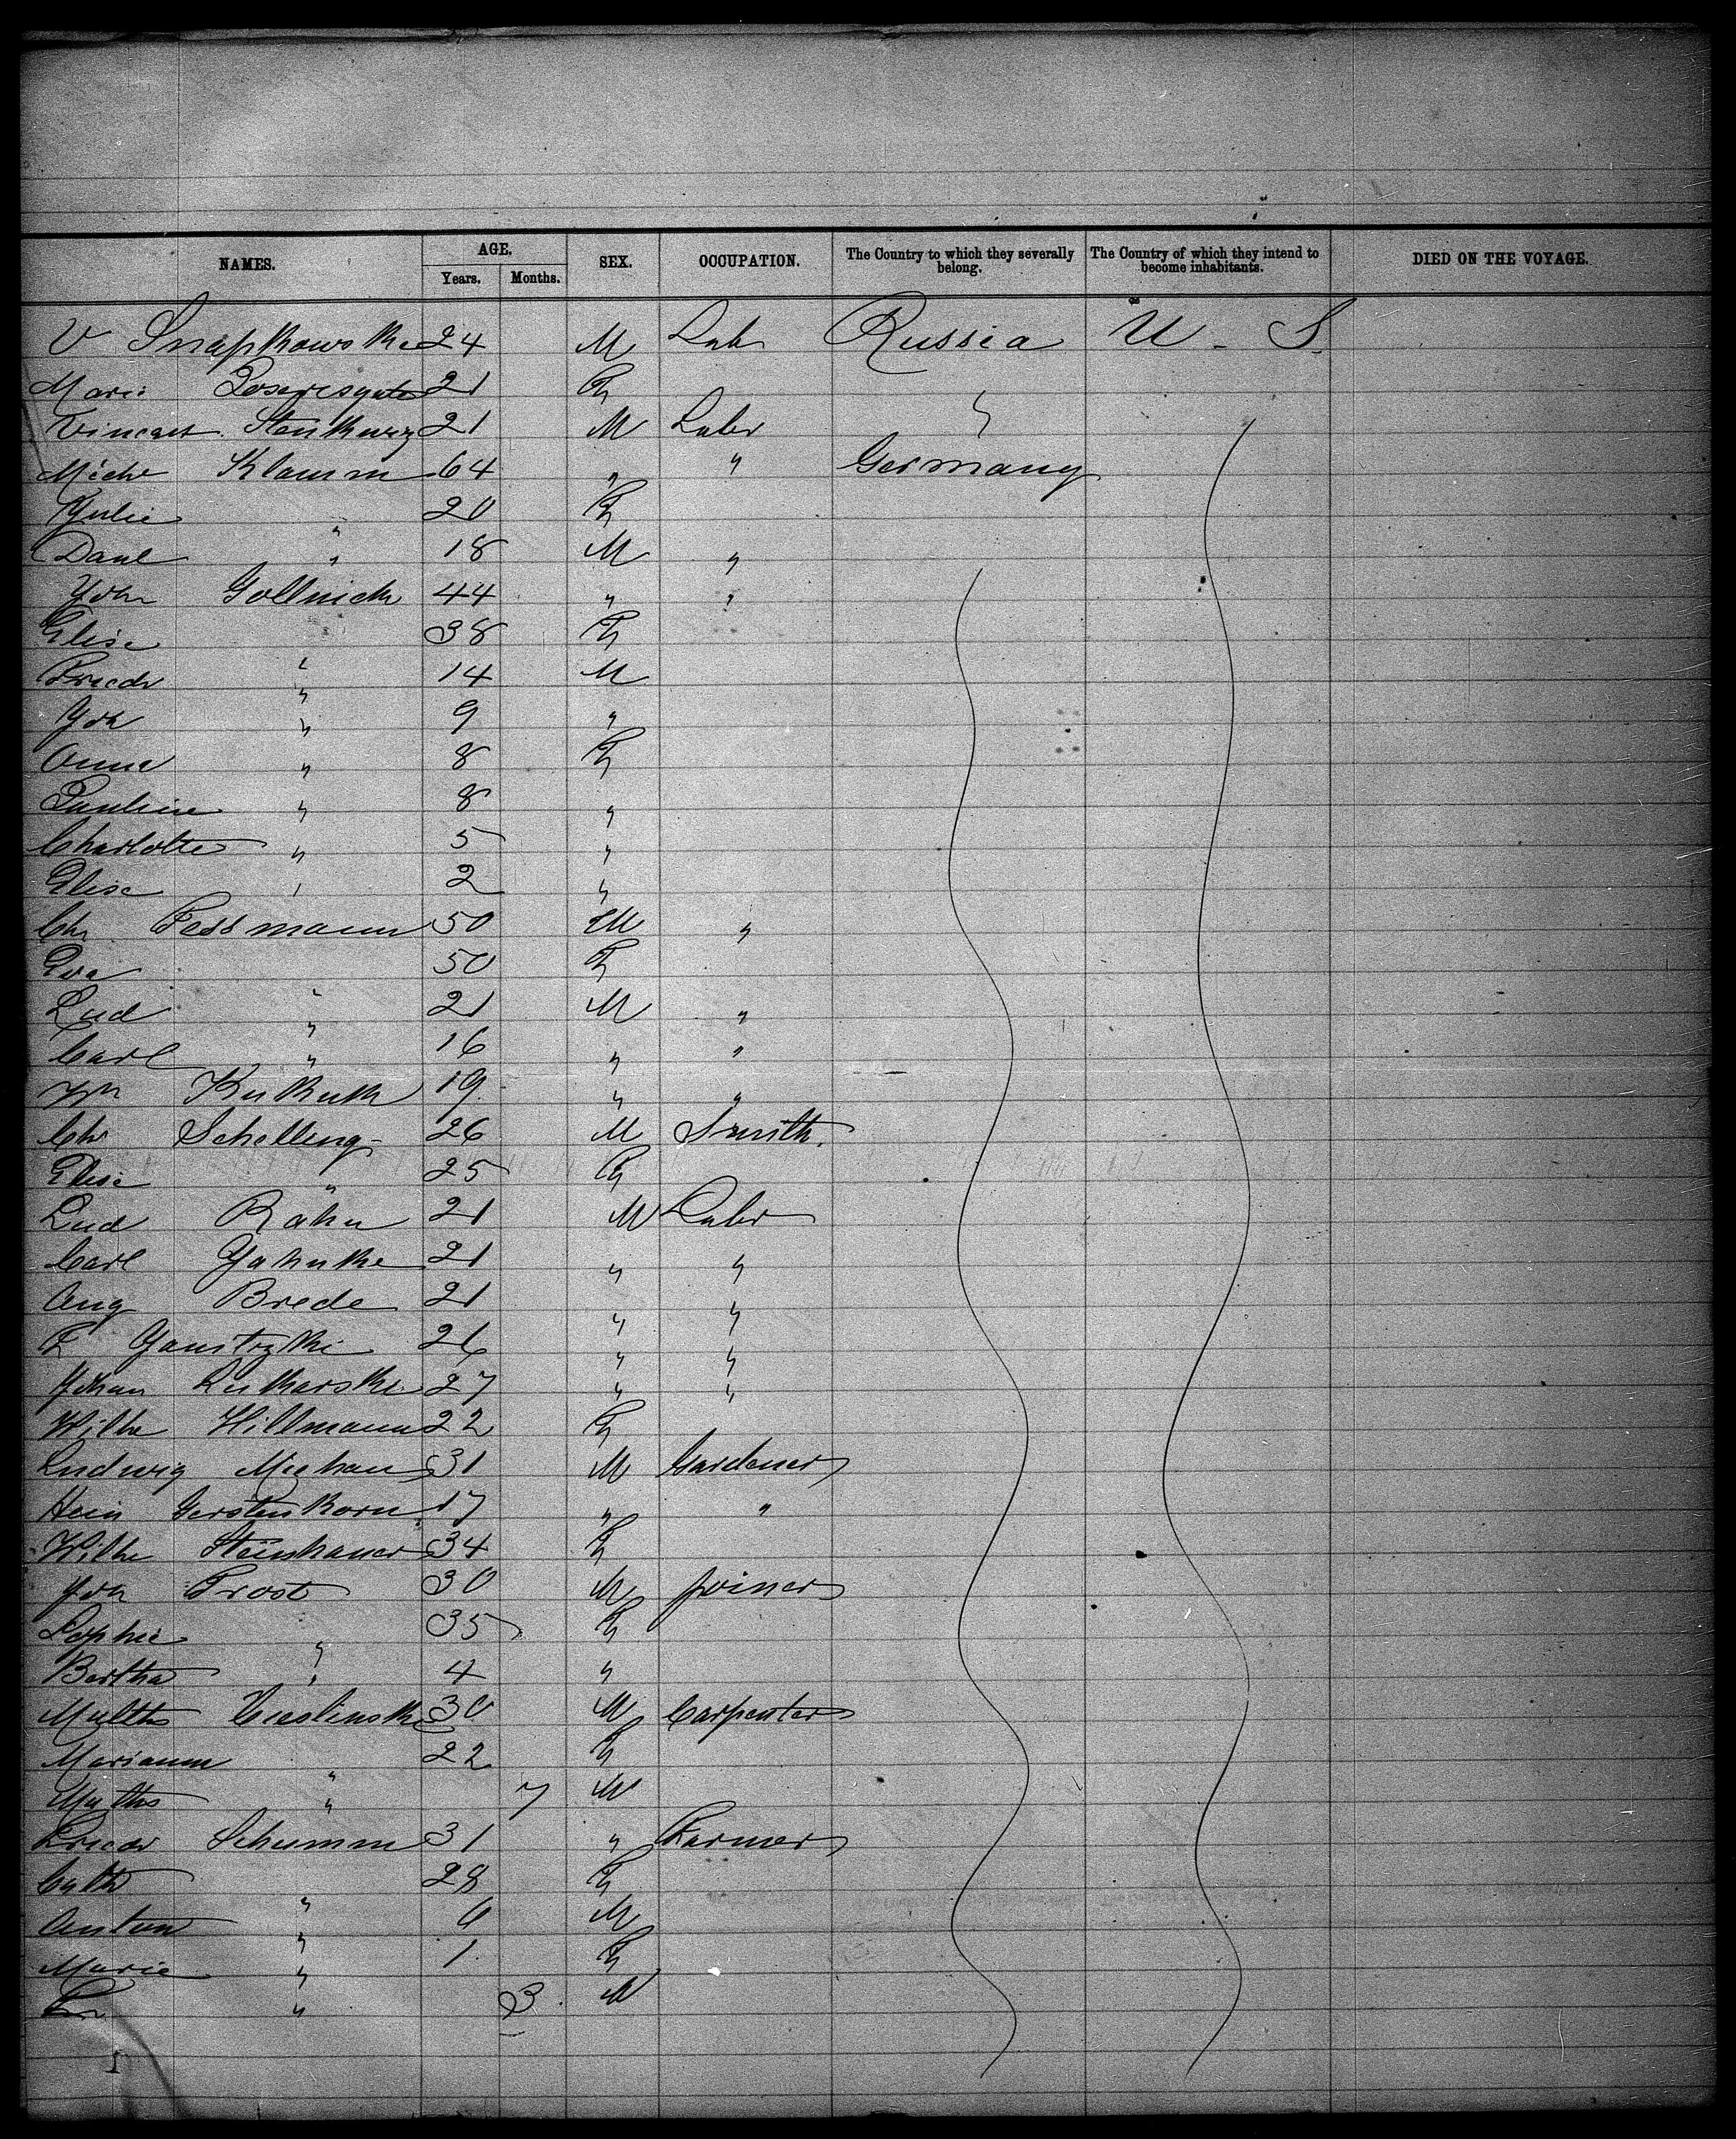 NAMES. AGE. Years. Months. SEX. OCCUPATION. The Country to which they severally belong. The Country of which they intend to become inhabitants. DIED ON THE VOYAGE.
V 24 M Lab Russia U - S.
Marie 21 F
Vincent 21 M Labr "
Miche Klamm 64 " " Germany
Julie " 20 F
Danl " 18 M "
Joh Gollnick 44 " "
Elise " 38 F
Friedr " 14 M
Joh " 9 "
Anna " 8 F
Pauline " 8 "
Charlotte " 5 "
Elise " 2 "
Chr Fessmann 50 M "
Eva " 50 F
Lud " 21 M "
Carl " 16 " "
Joh Kukuk 19 " "
Chr Schelling 26 M Smith.
Elise " 25 F
Lud Rahn 21 M Labr
Carl Jahnke 21 " "
Aug Brede 21 " "
F 26 " "
Johan 27 " "
Wilhe Hillmann 22 F
Ludwig 31 M Gardener
Hein Gerstenkorn 17 " "
Wilhe Steinhauer 34 F
Joh Frost 30 M Joiner
Sophie " 35 F
Bertha " 4 "
30 M Carpenter
Mariann " 22 F
Maths " 7 M
Friedr Schumm 31 " Farmer
Cath " 28 F
Anton " M
Marie " 1 F
" 3 M